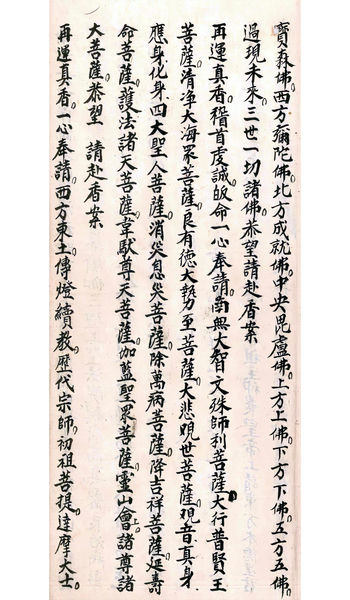 寳森佛西方彌陀佛北方成就佛中央毘盧佛上方上佛下方下佛五方五佛
過現未來三世一切諸佛恭望請赴香案
再運真香稽首虔誠皈命一心奉請南無大智文殊師利菩薩大行普賢王
菩薩清淨大海眾菩薩良有德大勢至菩薩大悲覌世菩薩覌音真身
應身化身四大聖人菩薩消災息災菩薩除萬病菩薩降吉祥菩薩延壽
命菩薩護法諸天菩薩韋馱尊天菩薩伽藍聖眾菩薩靈山會上諸尊諸
大菩薩恭望 請赴香案
再運真香一心奉請西方東土傳燈續教歷代宗師初祖菩提達摩大士